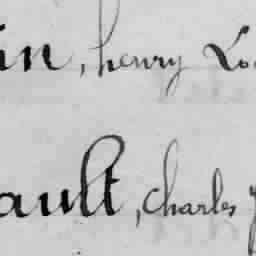 in, henry Lo
ault, charles